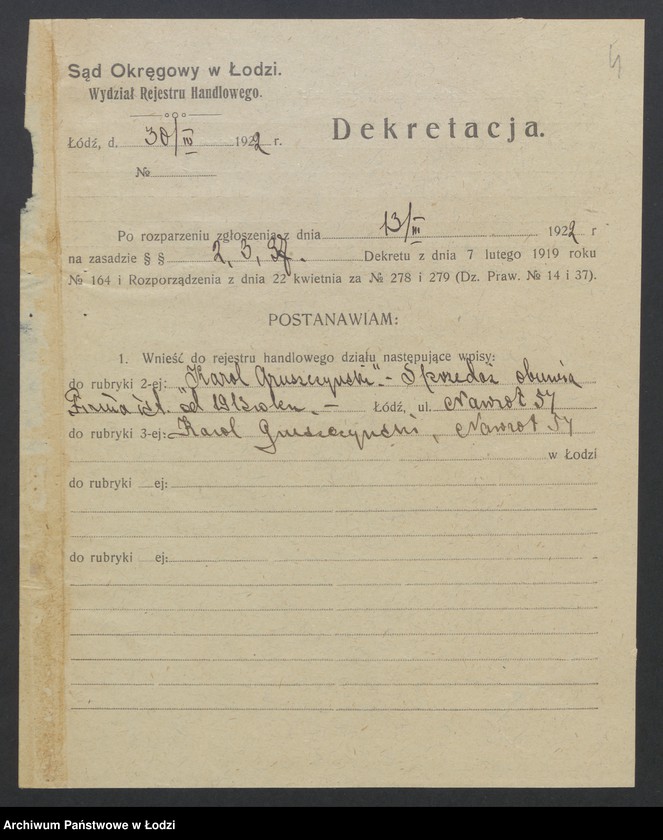 4
Sąd Okręgowy w Łodzi.
Wydział Rejestru Handlowego.
Łódź, d. 30/IV 1922 r.
Dekretacja.
№
Po rozparzeniu zgłoszenia z dnia 13/III 1922 r
na zasadzie § § 2, 3, Dekretu z dnia 7 lutego 1919 roku
№ 164 i Rozporządzenia z dnia 22 kwietnia za № 278 i 279 (Dz. Praw. № 14 i 37).
POSTANAWIAM:
1. Wnieść do rejestru handlowego działu następujące wpisy:
do rubryki 2-ej: "Karol Gruszczyński".- Sprzedaż obuwia
Firma istn. od 1913 roku. - Łódź, ul. Nawrot 57
do rubryki 3-ej: Karol Gruszczyński, Nawrot 57
w Łodzi
do rubryki ej:
do rubryki ej:
Archiwum Państwowe w Łodzi